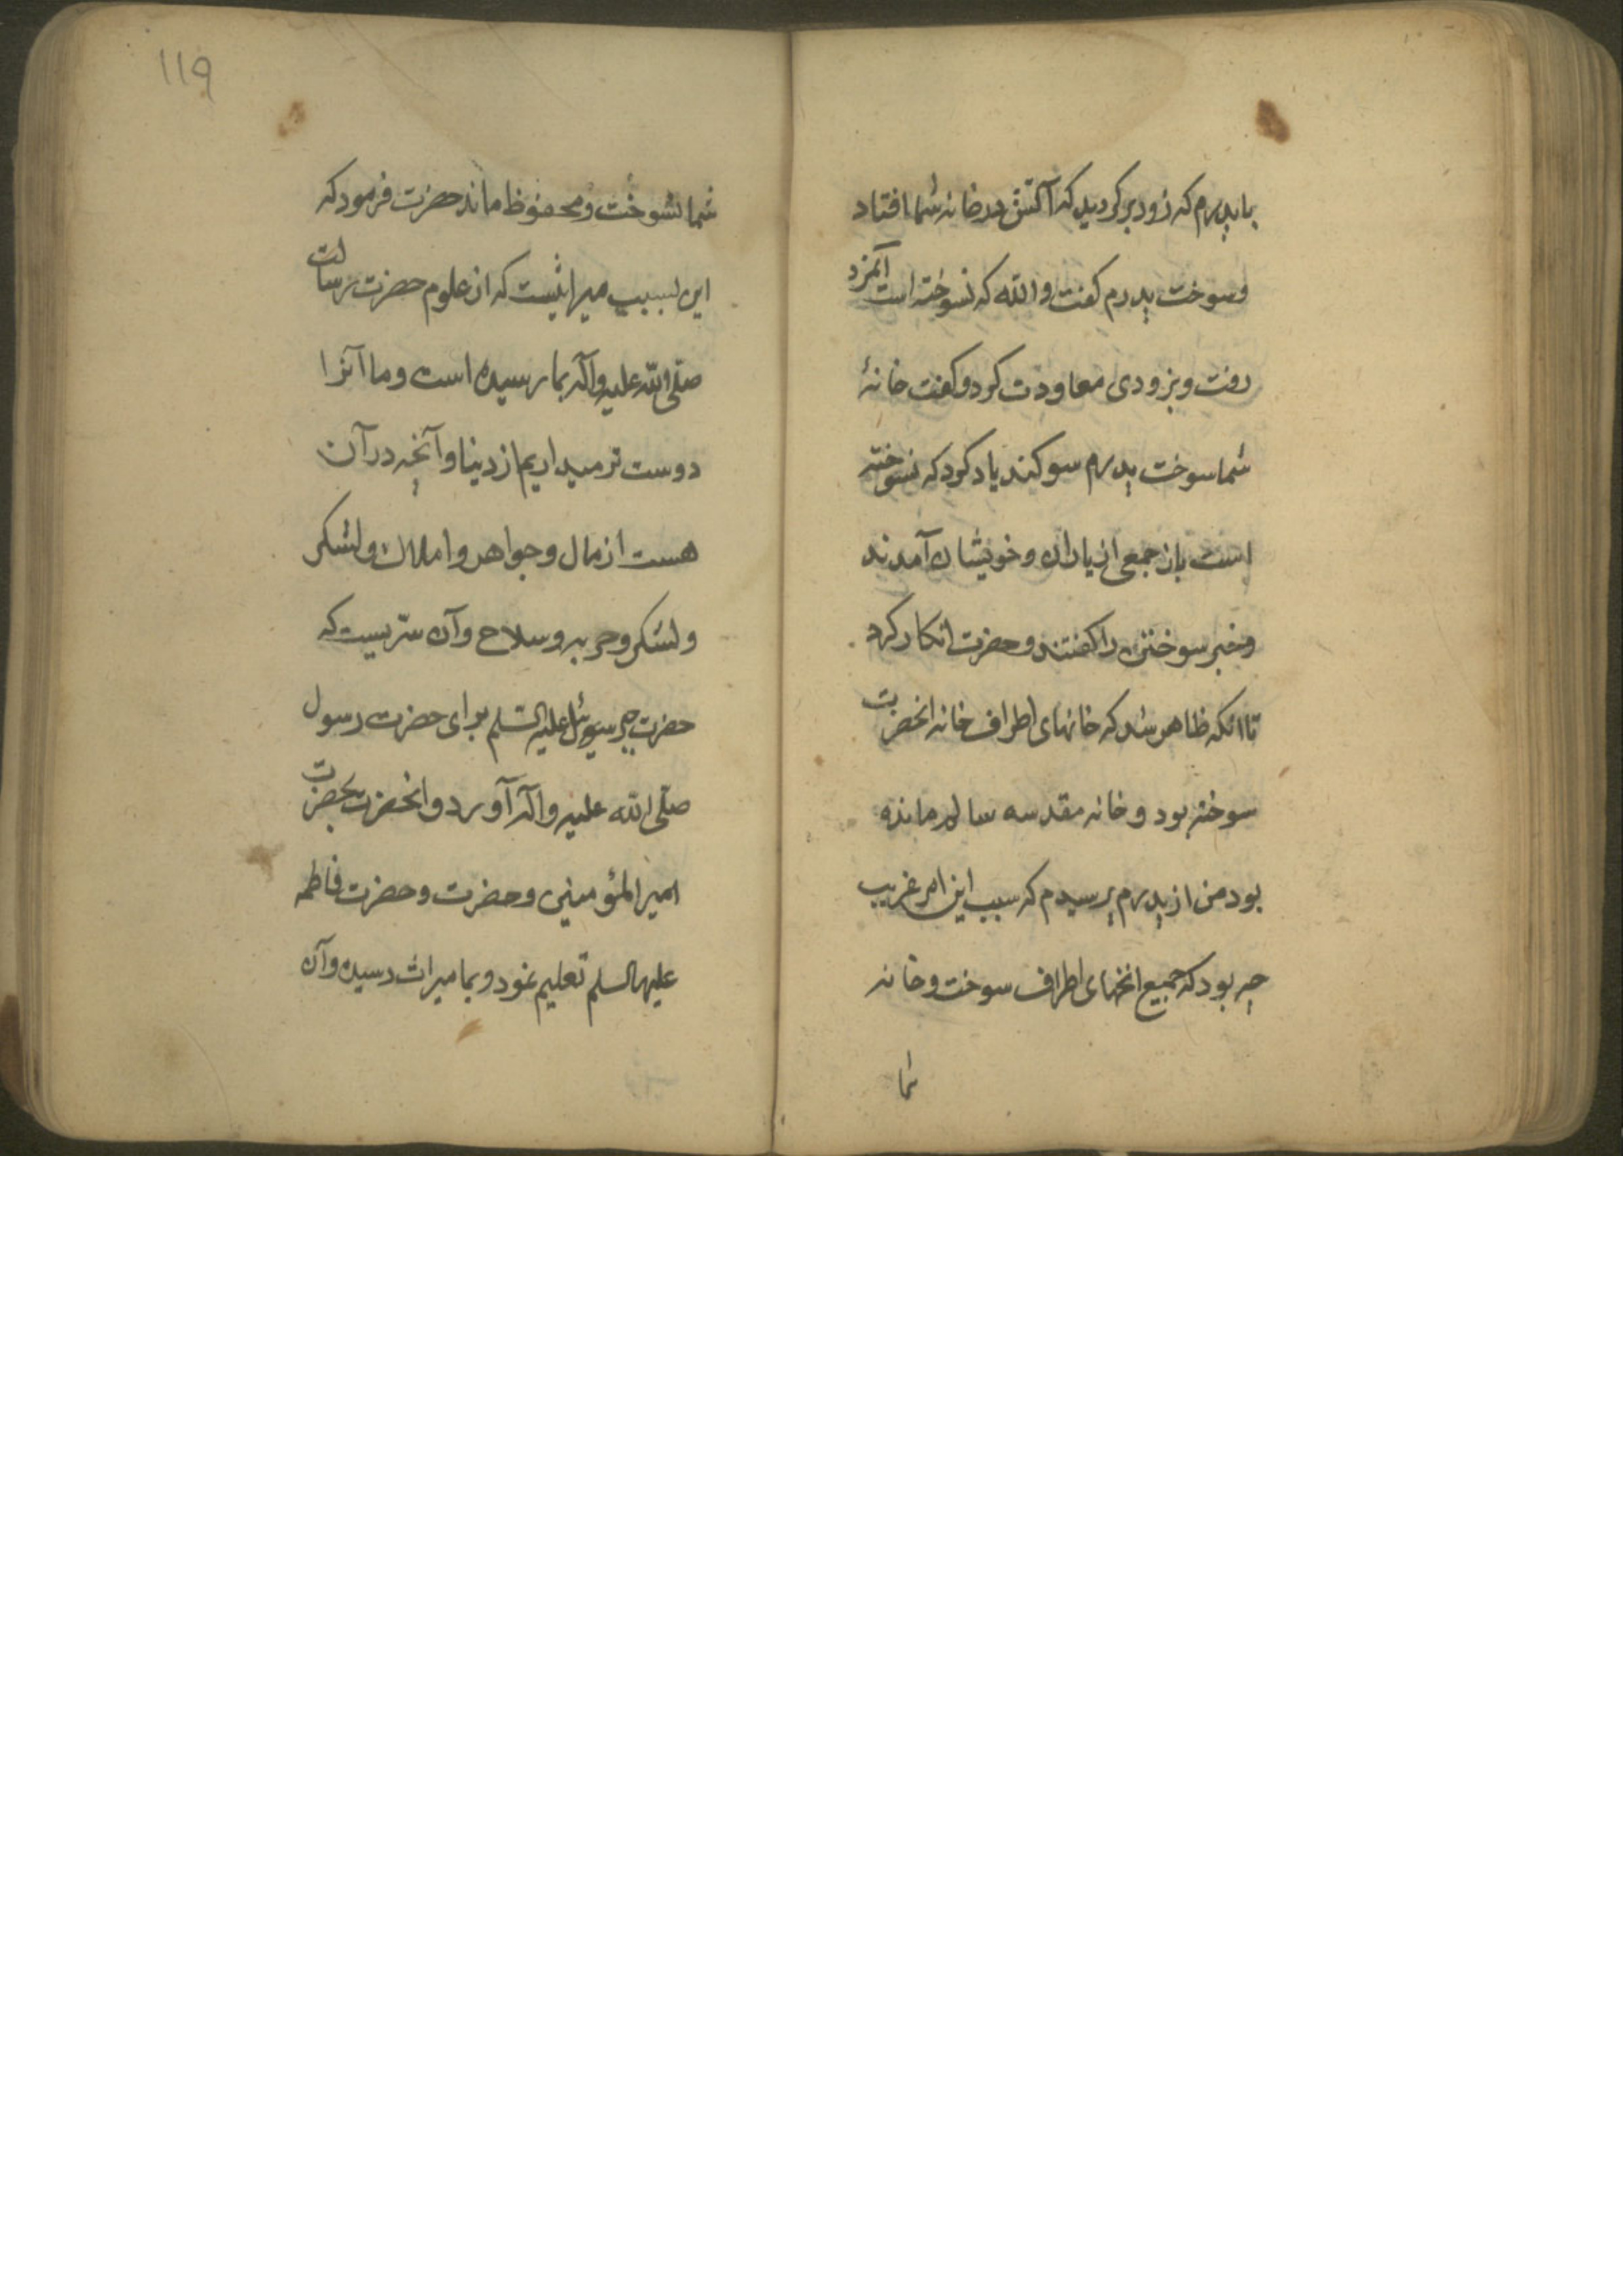 با پدرم که زود برگردید که آتش در خانه شما افتاد
و سوخت پدرم گفت والله که نسوخته است آنمرد
رفت و بزودی معاودت کرد و گفت خانهٔ
شما سوخت پدرم سوگند یاد کرد که نسوخته
است باز جمعی از یاران و خویشان آمدند
و خبر سوختن را گفتند و حضرت انکار کرد
تا انکه ظاهر شد که خانهای اطراف خانه انحضرت
سوخته بود و خانه مقدسه سالم مانده
بود من از پدرم پرسیدم که سبب این امر غریب
چه بود که جمیع انخهای اطراف سوخت و خانه
شما
۱۱۹
شما نسوخت و محفوظ ماند حضرت فرمود که
این بسبب میراثیست که از علوم حضرت رسالت
صلی الله علیه واله بما رسیده است و ما آنرا
دوست تر میداریم از دنیا و آنچه در آن
هست از مال و جواهر و املاک و لشکر
و لشکر و حربه و سلاح و آن سریست که
حضرت جبرئیل علیه السلم برای حضرت رسول
صلی الله علیه واله آورد و انحضرت بحضرت
امیرالمؤمنین و حضرت و حضرت فاطمه
علیهما السلم تعلیم نمود و بما میراث رسیده و آن